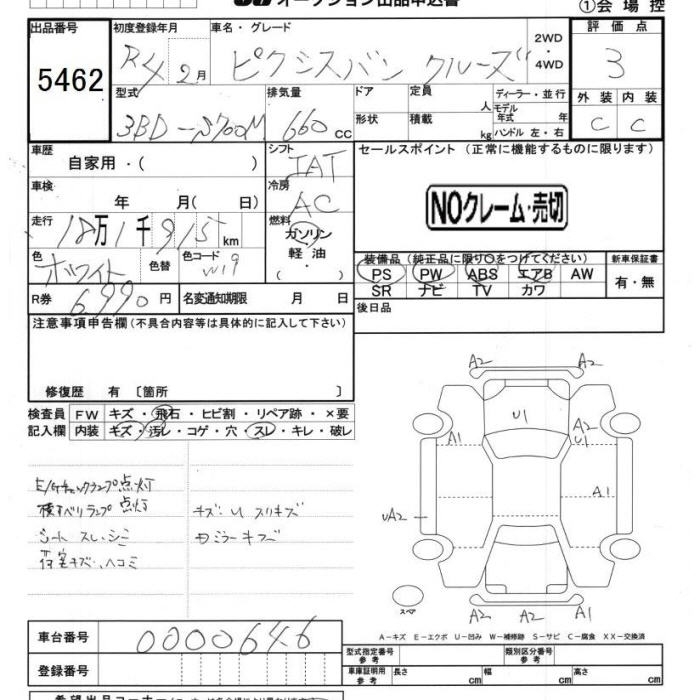 ①会場控
出品番号
5462
初度登録年月
R4 2月
車名・グレード
ピクシスバン クルーズ
2WD
・
4WD
評価点
3
型式
3BD-S700M
排気量
660 cc
ドア
形状
定員 人
積載 kg
ディーラー・並行
モデル年式 年
ハンドル 左・右
外装 内装
C C
車歴
自家用・( )
シフト
IAT
車検
年 月( 日)
冷房
AC
走行
18万1千915km
燃料
ガソリン
軽油
・
色
ホワイト
色替
色コード
W19
R券 6,990円
名変通知期限 月 日
セールスポイント (正常に機能するものに限ります)
NOクレーム・売切
装備品(純正品に限り○をつけてください)
PS PW ABS エアB AW
SR ナビ TV カワ
新車保証書
有・無
後日品
注意事項申告欄(不具合内容等は具体的に記入して下さい)
修復歴 有 〔箇所 〕
検査員記入欄
FW キズ・飛石・ヒビ割・リペア跡・×要
内装 キズ・汚レ・コゲ・穴・スレ・キレ・破レ
E/Gチェックランプ点灯
横すべりランプ点灯
シート スレ・シミ
荷室キズ・ヘコミ
キズ・U スリキズ
ミラーキズ
A2 A2
U1
A1
A2
U1
A1
UA2
スペア
A2 A2 A1
A-キズ E-エクボ U-凹み W-補修跡 S-サビ C-腐食 XX-交換済
車台番号
0000646
登録番号
型式指定番号
参考
類別区分番号
参考
車庫証明用
参考
長さ cm
幅 cm
高さ cm